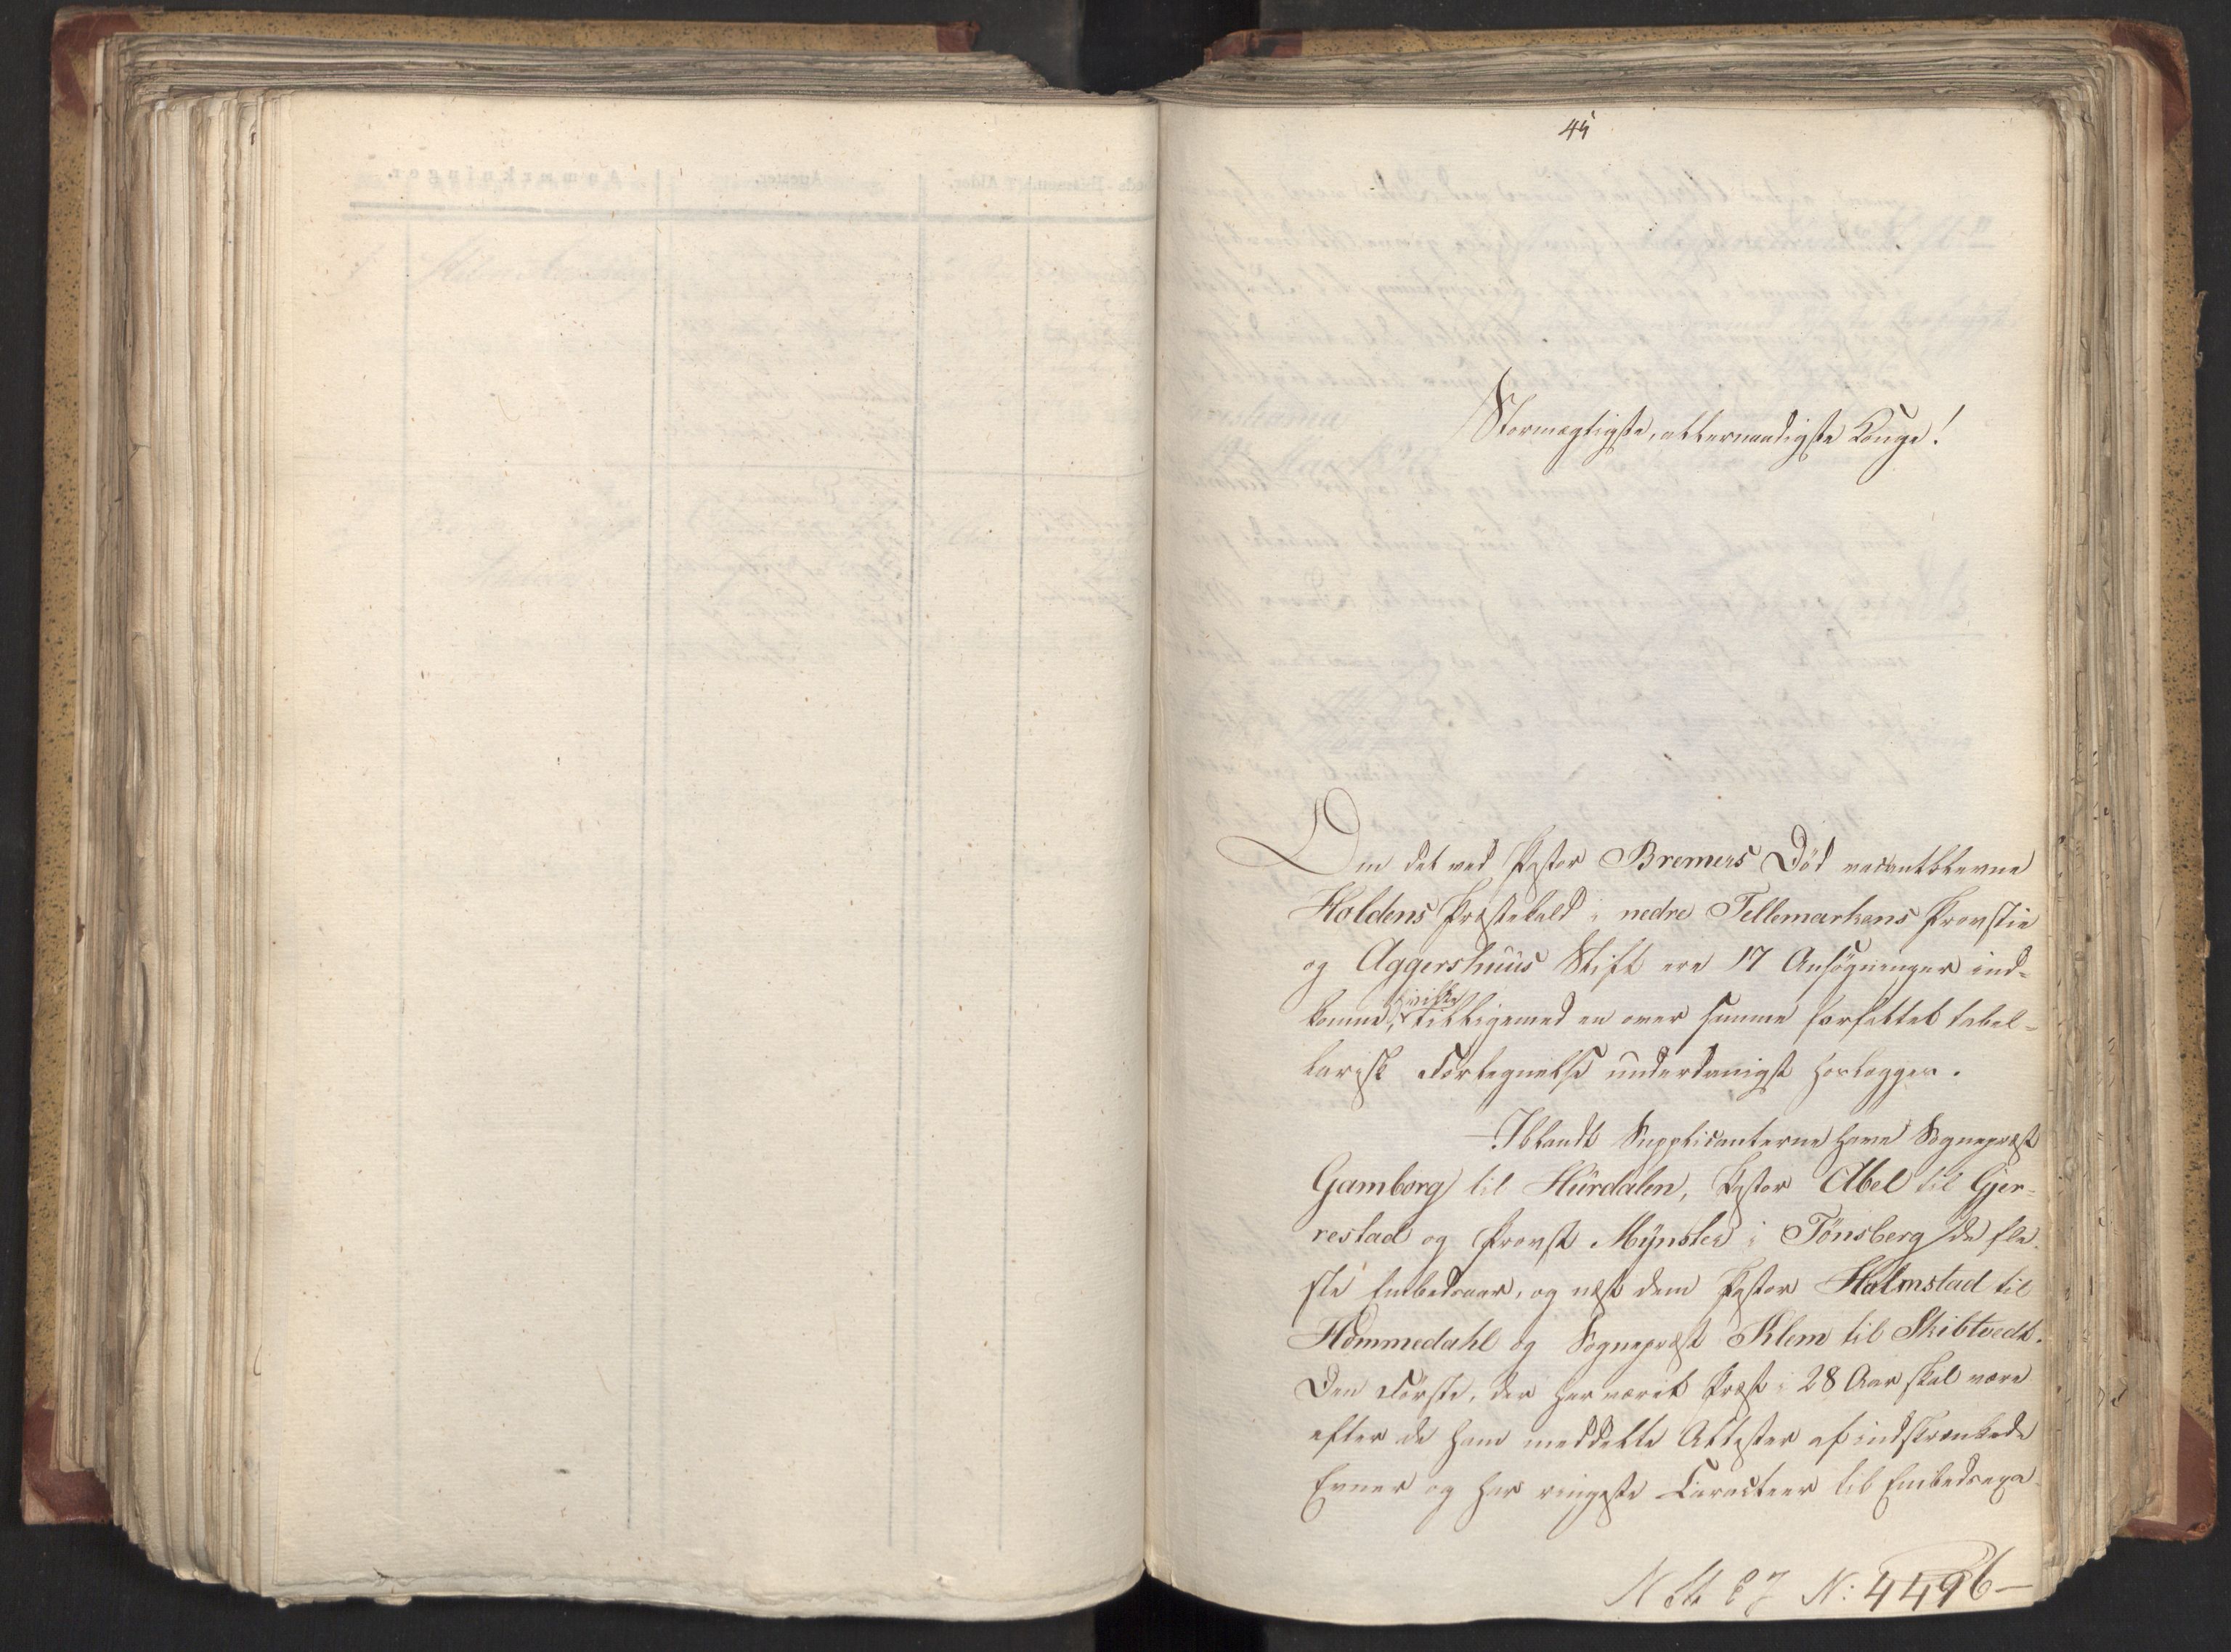 45
Stormægtigste, allernaadigste Konge!
Om det ved Pastor Bremers Död vacantblevne
Holdens Præstekald i nedre Tellemarkens Provstie
og Aggershuus Stift ere 17 Ansögninger ind-
komne, hvilke tilligemed en over samme forfattet tabel-
larisk Fortegnelse underdanigst forlægges.
Iblandt Supplicanterne have Sognepræst
Gamborg til Hurdalen, Pastor Abel til Gjer-
restad og Provst Mynster i Tönsberg de fle-
ste Embedsaar, og næst dem Pastor Halmstad til
Hommedahl og Sognepræst Klem til Skibtvedt.
Den Förste, der har været Præst i 28 Aar skal være
efter de ham meddeelte Attester af indskrænkede
Evner og har ringeste Caracteer til Embedsexa-
N: 4496